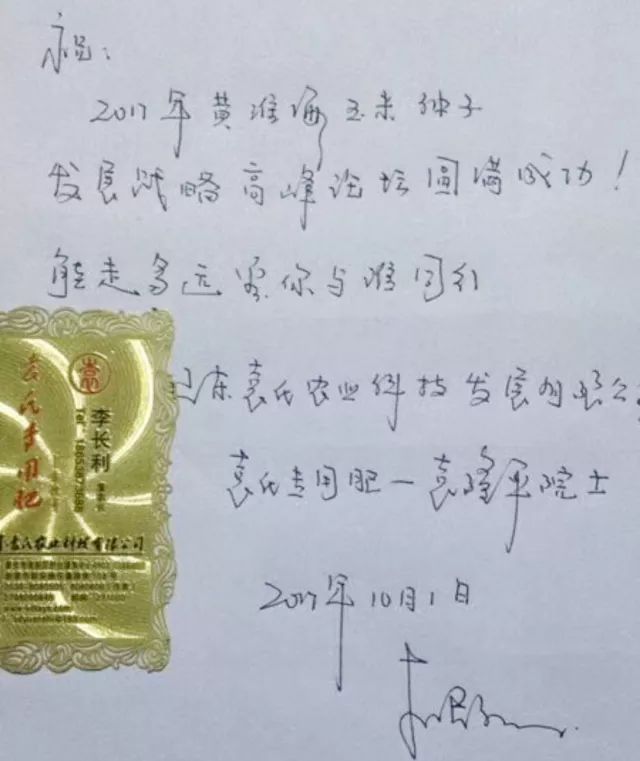 祝：
2017年黄淮海玉米种子
发展战略高峰论坛圆满成功！
能走多远要你与谁同行
东袁氏农业科技发展有限公
袁氏专用肥一袁隆平院士
2017年10月1日
袁氏专用肥
李长利 董事长
Tel
袁氏农业科技有限公司